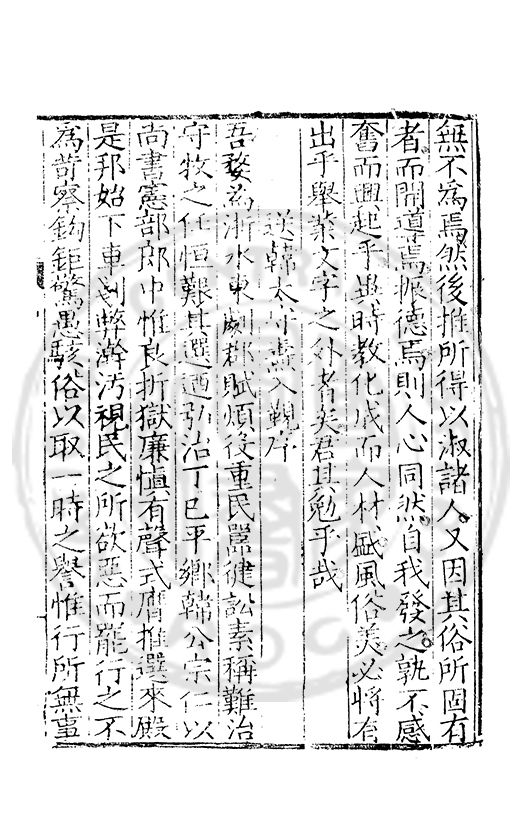 無不為焉然後推所得以淑諸人又因其俗所固有
者而開導焉振德焉則人心同然自我發之孰不感
奮而興起乎異時教化成而人材盛風俗美必將有
出乎舉業文字之外者矣君其勉乎哉
送韓太守燾入覲序
吾婺為浙水東劇郡賦煩役重民嚚健訟素稱難治
守牧之任恒艱其選迺弘治丁巳平鄉韓公宗仁以
尚書憲部郎中惟良折獄廉慎有聲式膺推選來殿
是邦始下車剗弊澣汚視民之所欲惡而罷行之不
為苛察鈎鉅驚愚駭俗以取一時之譽惟行所無事